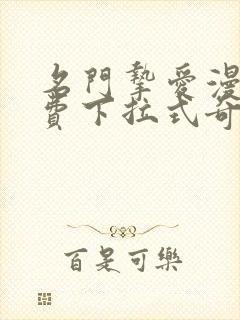 名門摯愛漫
費下拉式奇
百是可樂